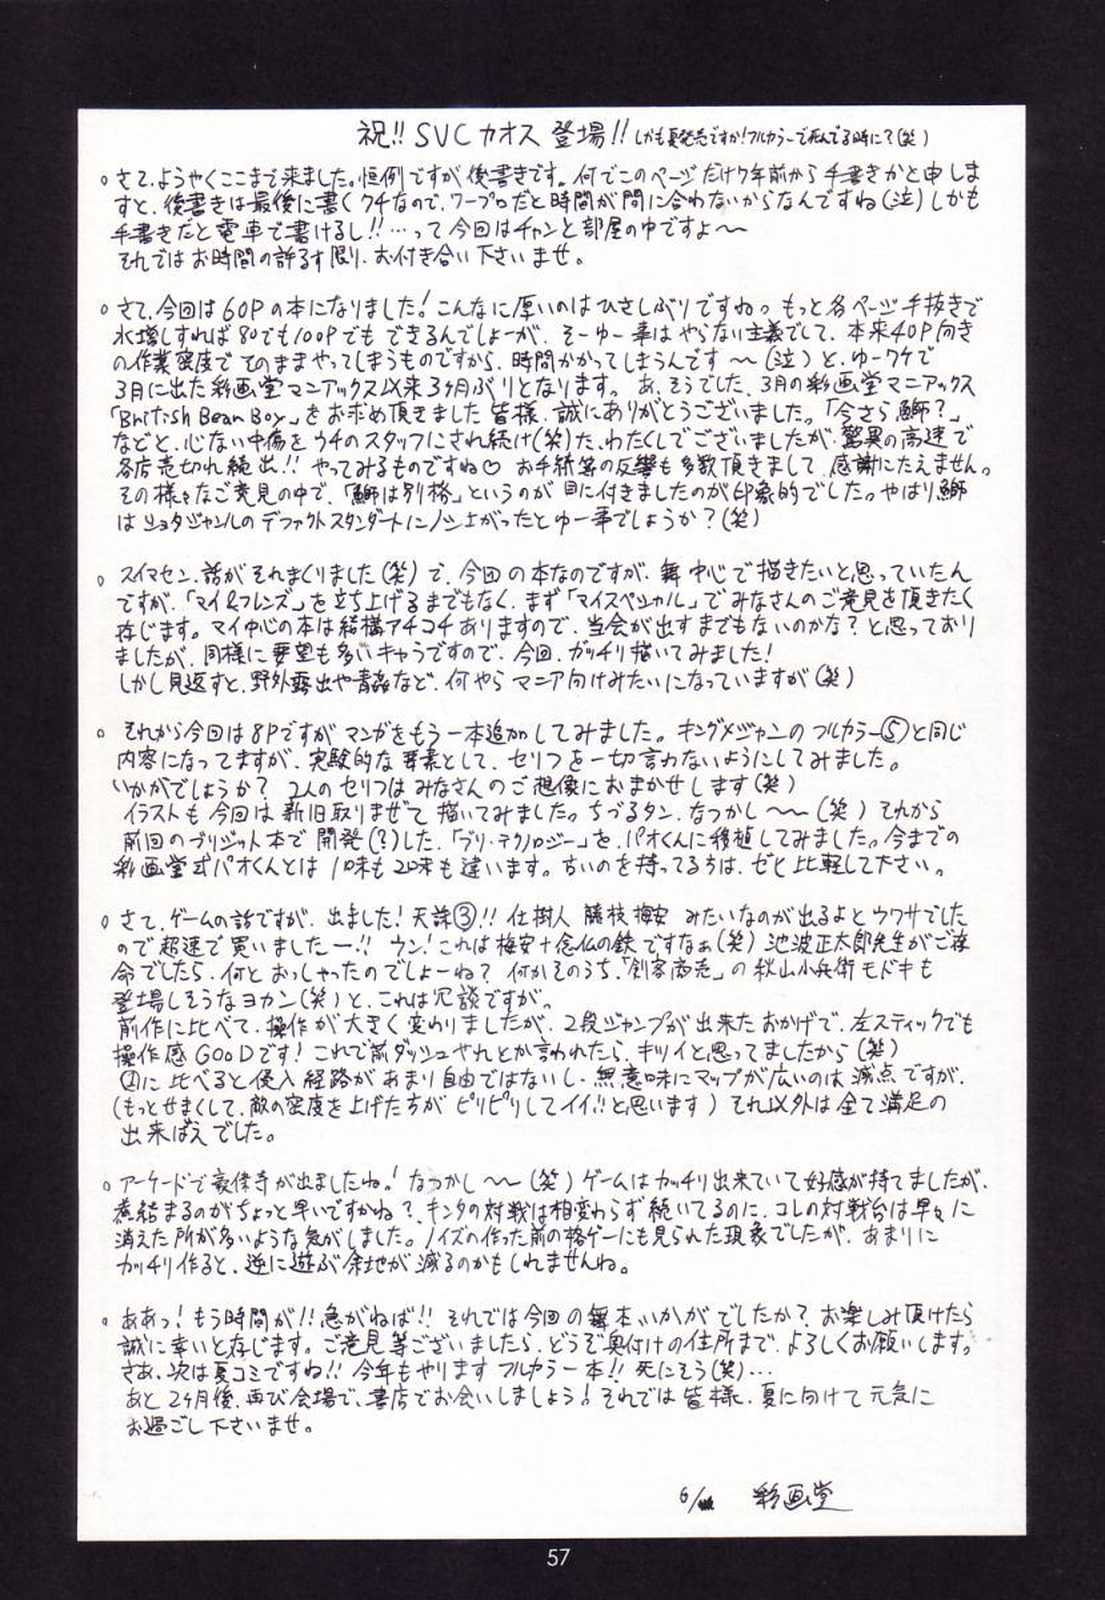 祝!! SVC カオス 登場!! しかも夏発売ですか!フルカラーで死んでる時に?(笑)
○ さて、ようやくここまで来ました。恒例ですが後書きです。何でこのページだけ7年前から手書きかと申しま
すと、後書きは最後に書くクチなので、ワープロだと時間が間に合わないからなんですね(泣)しかも
手書きだと電車で書けるし!!…って今回はチャンと部屋の中ですよ〜
それではお時間の許るす限り、お付き合い下さいませ。
○ さて、今回は60Pの本になりました!こんなに厚いのはひさしぶりですね。もっと各ページ手抜きで
水増しすれば80でも100Pでもできるんでしょーが、そーゆー事はやらない主義でして、本来40P向き
の作業密度でそのままやってしまうものですから、時間かかってしまうんです〜(泣)と、ゆーワケで
3月に出た彩画堂マニアックス以来3ヶ月ぶりとなります。あ、そうでした、3月の彩画堂マニアックス
「British Bean Boy」をお求め頂きました皆様、誠にありがとうございました。「今さら鰤?」
などと、心ない中傷をウチのスタッフにされ続け(笑)た、わたくしでございましたが、驚異の高速で
各店売切れ続出!! やってみるものですね♡ お手紙等の反響も多数頂きまして、感謝にたえません。
その様々なご意見の中で、「鰤は別格」というのが目に付きましたのが印象的でした。やはり鰤
はショタジャンルのデファクトスタンダートにノシ上がったとゆー事でしょうか?(笑)
○ スイマセン、話がそれまくりました(笑)で、今回の本なのですが、舞中心で描きたいと思っていたん
ですが、「マイ&フレンズ」を立ち上げるまでもなく、まず「マイスペシャル」でみなさんのご意見を頂きたく
存じます。マイ中心の本は結構アチコチありますので、当会が出すまでもないのかな?と思っており
ましたが、同様に要望も多いキャラですので、今回、ガッチリ描いてみました!
しかし見返すと、野外露出や青姦など、何やらマニア向けみたいになっていますが(笑)
○ それから今回は8Pですがマンガをもう一本追加してみました。キング×ジャンのフルカラー⑤と同じ
内容になってますが、実験的な要素として、セリフを一切言わないようにしてみました。
いかがでしょうか? 2人のセリフはみなさんのご想像におまかせします(笑)
イラストも今回は新旧取りまぜて描いてみました。ちづるタン、なつかし〜〜(笑)それから
前回のブリジット本で開発(?)した、「ブリ・テクノロジー」を、パオくんに移植してみました。今までの
彩画堂式パオくんとは1味も2味も違います。古いのを持ってる方は、ぜひ比較して下さい。
○ さて、ゲームの話ですが、出ました!天誅③!! 仕掛人 藤枝梅安 みたいなのが出るよとウワサでした
ので超速で買いましたー!! ウン!これは梅安+念仏の鉄ですなぁ(笑)池波正太郎先生がご存
命でしたら、何とおっしゃったのでしょーね? 何かそのうち、「剣客商売」の秋山小兵衛モドキも
登場しそうなヨカン(笑)と、これは冗談ですが。
前作に比べて、操作が大きく変わりましたが、2段ジャンプが出来たおかげで、左スティックでも
操作感GOODです!これで前ダッシュやれとか言われたら、キツイと思ってましたから(笑)
②に比べると侵入経路があまり自由ではないし、無意味にマップが広いのは減点ですが、
(もっとせまくして、敵の密度を上げた方がピリピリしてイイ!!と思います)それ以外は全て満足の
出来ばえでした。
○ アーケードで豪傑寺が出ましたね!なつかし〜〜(笑)ゲームはカッチリ出来ていて好感が持てましたが、
煮詰まるのがちょっと早いですかね?、キンタの対戦は相変わらず続いてるのに、コレの対戦台は早々に
消えた所が多いような気がしました。ノイズの作った前の格ゲーにも見られた現象でしたが、あまりに
カッチリ作ると、逆に遊ぶ余地が減るのかもしれませんね。
○ ああっ!もう時間が!!急がねば!! それでは今回の舞本いかがでしたか?お楽しみ頂けたら
誠に幸いと存じます。ご意見等ございましたら、どうぞ奥付けの住所まで、よろしくお願いします。
さあ、次は夏コミですね!! 今年もやります フルカラー本!! 死にそう(笑)…
あと2ヶ月後、再び会場で、書店でお会いしましょう!それでは皆様、夏に向けて元気に
お過ごし下さいませ。
6/ 彩画堂
57